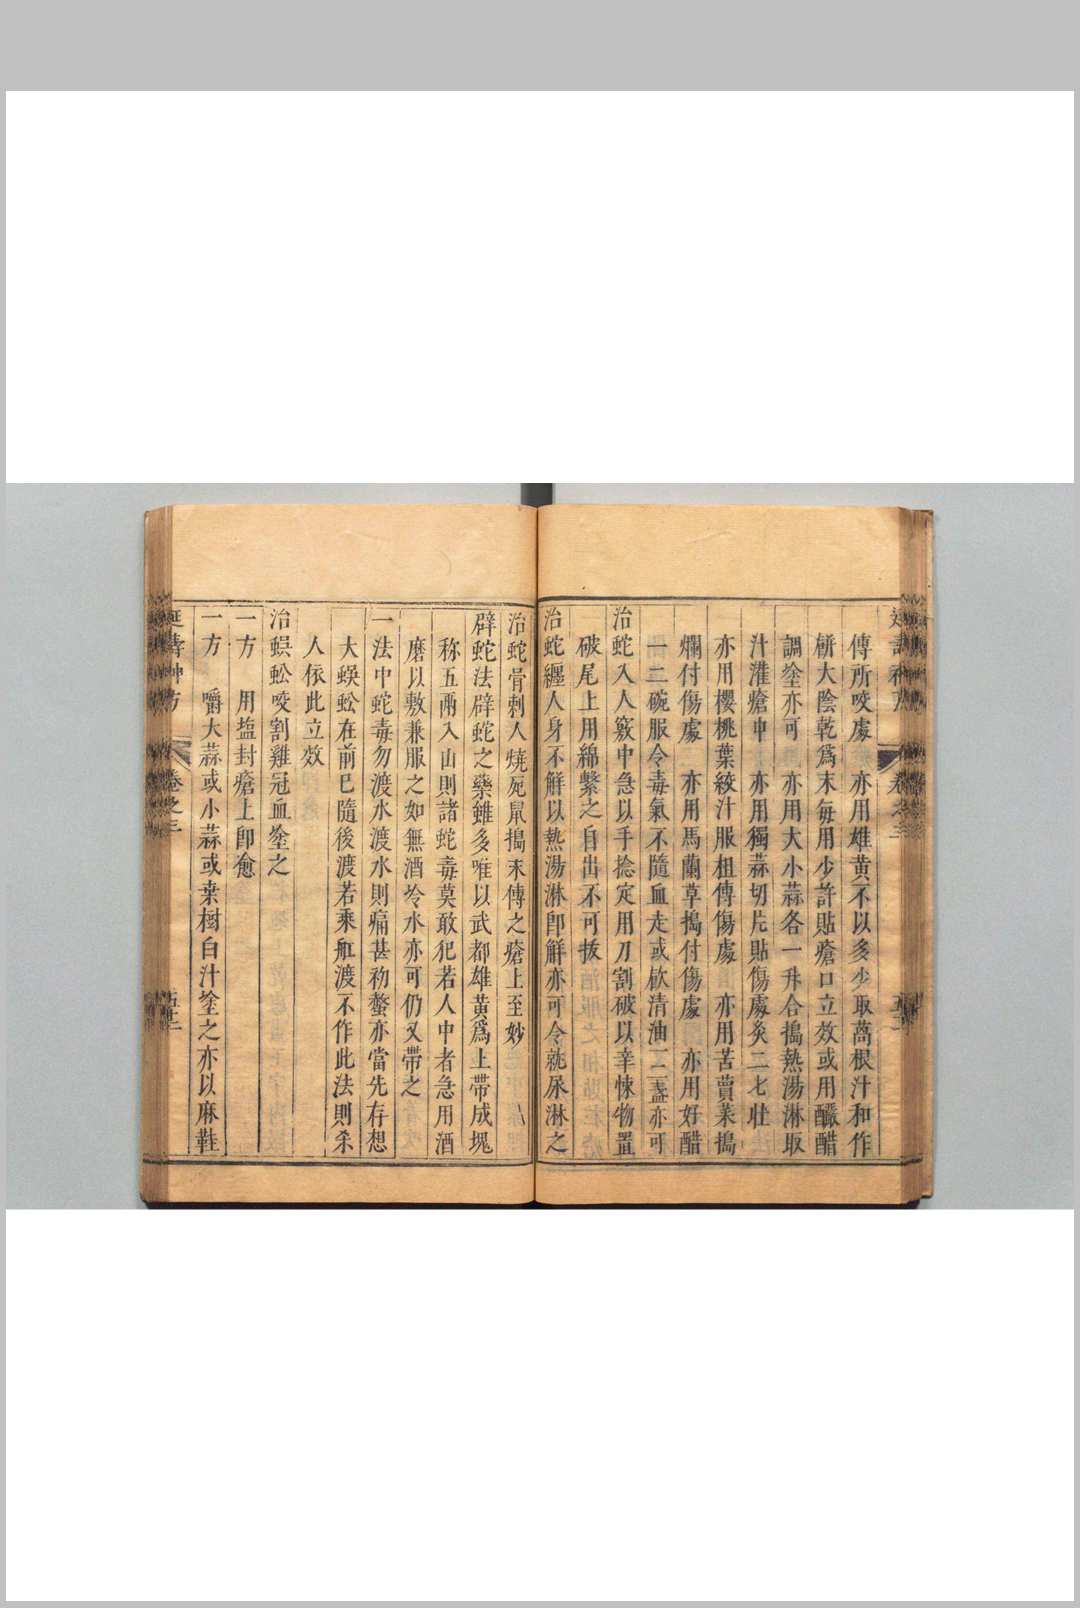 傅所咬處　亦用雄黄不以多少取萵根汁和作
餠大陰乾爲末每用少許貼瘡口立效或用釅醋
調塗亦可　亦用大小蒜各一升合搗熱湯淋取
汁灌瘡中　亦用獨蒜切片貼傷處灸二七壯
亦用櫻桃葉絞汁服柤傅傷處　亦用苦蕒菜搗
爛付傷處　亦用馬蘭草搗付傷處　亦用好醋
一二碗服令毒氣不隨血走或飲清油一二盞亦可
治蛇入人竅中急以手捻定用刀割破以辛悚物置
破尾上用綿繫之自出不可拔
治蛇纒人身不解以熱湯淋卽解亦可令就尿淋之
治蛇骨刺人燒死鼠搗末傅之瘡上至妙
辟蛇法辟蛇之藥雖多唯以武都雄黄爲上帶成塊
称五兩入山則諸蛇毒莫敢犯若人中者急用酒
磨以敷兼服之如無酒冷水亦可仍又帶之
一法中蛇毒勿渡水渡水則痛甚初螫亦當先存想
大蜈蚣在前已隨後渡若乘舡渡不作此法則杀
人依此立效
治蜈蚣咬割雞冠血塗之
一方　用塩封瘡上卽愈
一方　嚼大蒜或小蒜或桒樹白汁塗之亦以麻鞋
神方　卷之三　五十二